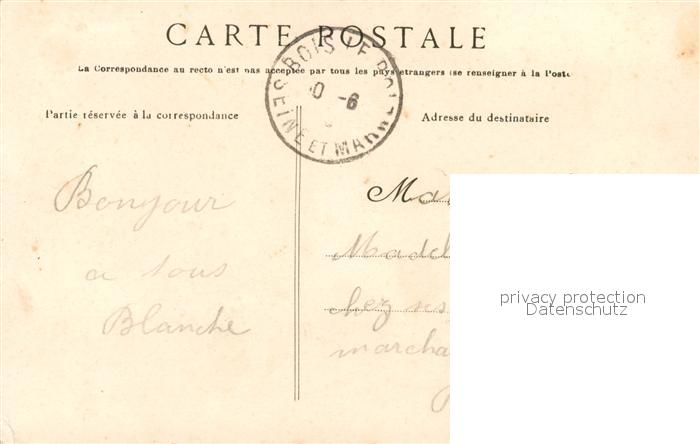 CARTE POSTALE
La Correspondance au recto n'est pas acceptée par tous les pays étrangers (se renseigner à la Poste
BOIS LE ROI
0 -6
SEINE ET MARNE
Partie réservée à la correspondance
Adresse du destinataire
Bonjour
a tous
Blanche
Ma
Madel
chez ses
marcha
privacy protection
Datenschutz